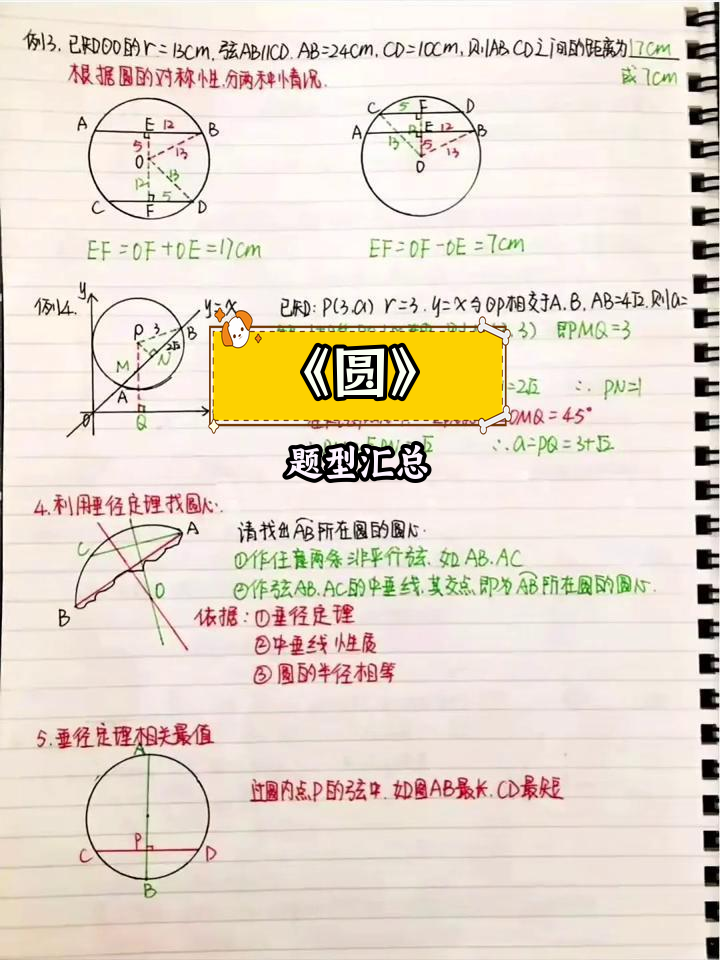 例3. 已知⊙O的r=13cm, 弦AB∥CD. AB=24cm, CD=10cm, 则AB,CD之间的距离为17cm
或7cm
根据圆的对称性,分两种情况.
A E 12 B
5
O 13
12 13
5
C F D
C 5 F D
A 12 E 12 B
13 5 13
O
EF=OF+OE=17cm
EF=OF-OE=7cm
例4.
y y=x
P 3 B
2√2
M N
A
O Q
已知: P(3,a) r=3. y=x与⊙P相交于A,B, AB=4√2, 则a=
3) 即MQ=3
《圆》
=2√2 ∴PN=1
OMQ=45°
∴a=PQ=3+√2
题型汇总
4.利用垂径定理找圆心.
A
C
O
B
请找出AB所在圆的圆心.
①作任意两条非平行弦, 如AB,AC
②作弦AB,AC的中垂线,其交点即为AB所在圆的圆心.
依据: ①垂径定理
②中垂线性质
③圆的半径相等
5.垂径定理相关最值
A
P
C D
B
过圆内点P的弦中, 如图AB最长, CD最短